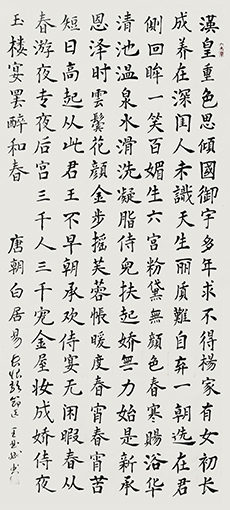 漢皇重色思傾國御宇多年求不得楊家有女初長
成养在深闺人未識天生丽质難自弃一朝选在君
侧回眸一笑百媚生六宫粉黛無颜色春寒賜浴华
清池温泉水滑洗凝脂侍兒扶起娇無力始是新承
恩泽时雲鬓花顔金步摇芙蓉帳暖度春宵春宵苦
短日高起从此君王不早朝承欢侍宴无闲暇春从
春游夜专夜后宫三千人三千宠金屋妆成娇侍夜
玉楼宴罢醉和春 唐朝白居易長恨歌節选